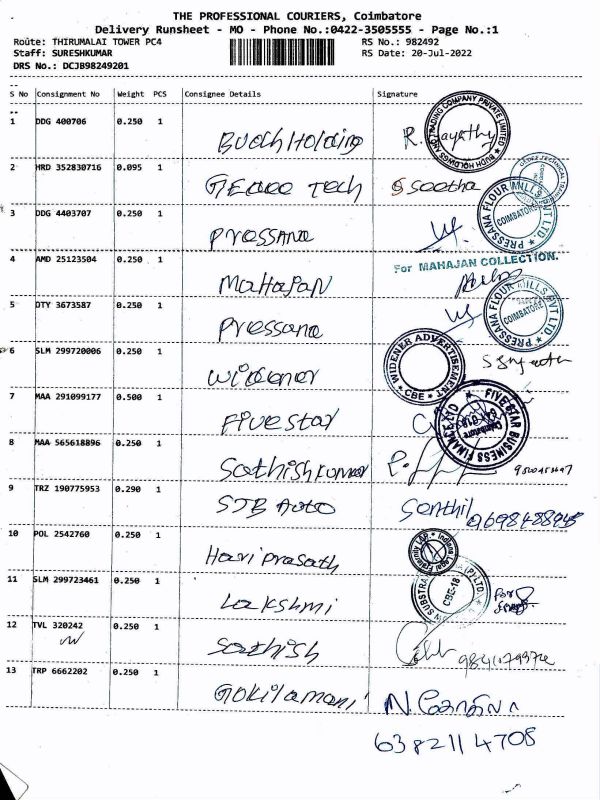 THE PROFESSIONAL COURIERS, Coimbatore
Delivery Runsheet - MO - Phone No.:0422-3505555 - Page No.:1
Route: THIRUMALAI TOWER PC4 RS No.: 982492
Staff: SURESHKUMAR RS Date: 20-Jul-2022
DRS No.: DCJB98249201
S No Consignment No Weight PCS Consignee Details Signature
1 DDG 400706 0.250 1 Budh Holding R. Gayathy
BUDH HOLDINGS AND TRADING COMPANY PRIVATE LIMITED
2 HRD 352830716 0.095 1 Gedee Tech S Seetha
3 DDG 4403707 0.250 1 Pressana
PRESSANA FLOUR MILLS PVT LTD. COIMBATORE
4 AMD 25123504 0.250 1 Mahajan
For MAHAJAN COLLECTION.
5 DTY 3673587 0.250 1 Pressana
PRESSANA FLOUR MILLS PVT LTD. COIMBATORE
6 SLM 299720006 0.250 1 Widener
WIDENER ADVERTISEMENT CBE
7 MAA 291099177 0.500 1 Five Star
FIVE STAR BUSINESS FINANCE LTD Coimbatore
8 MAA 565618896 0.250 1 Sathish kumar
9 TRZ 190775953 0.290 1 STB Auto Senthil
10 POL 2542760 0.250 1 Hari prasath
11 SLM 299723461 0.250 1 Lakshmi
CBE-18 For
12 TVL 320242 0.250 1 Sathish
13 TRP 6662202 0.250 1 Gokilamani N. கோகிலா
6382114708